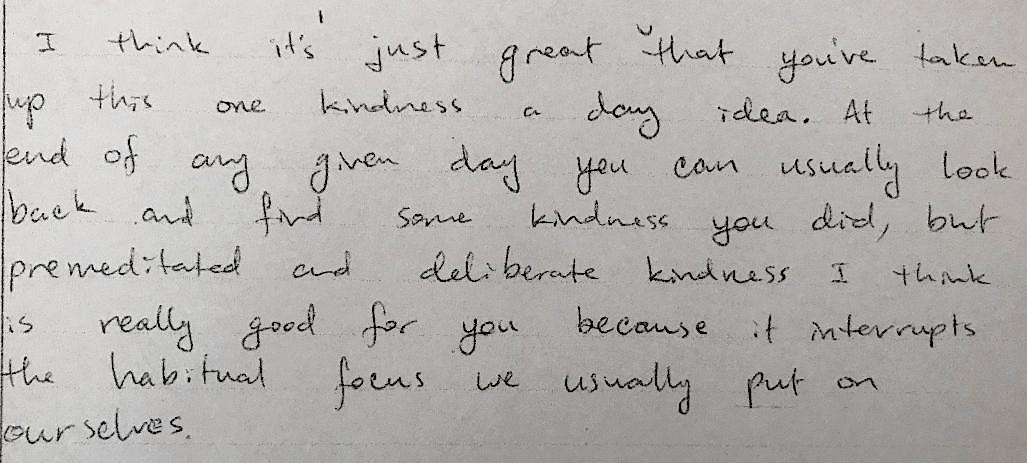 I think it's just great that you've taken
up this one kindness a day idea. At the
end of any given day you can usually look
back and find some kindness you did, but
premeditated and deliberate kindness I think
is really good for you because it interrupts
the habitual focus we usually put on
ourselves.